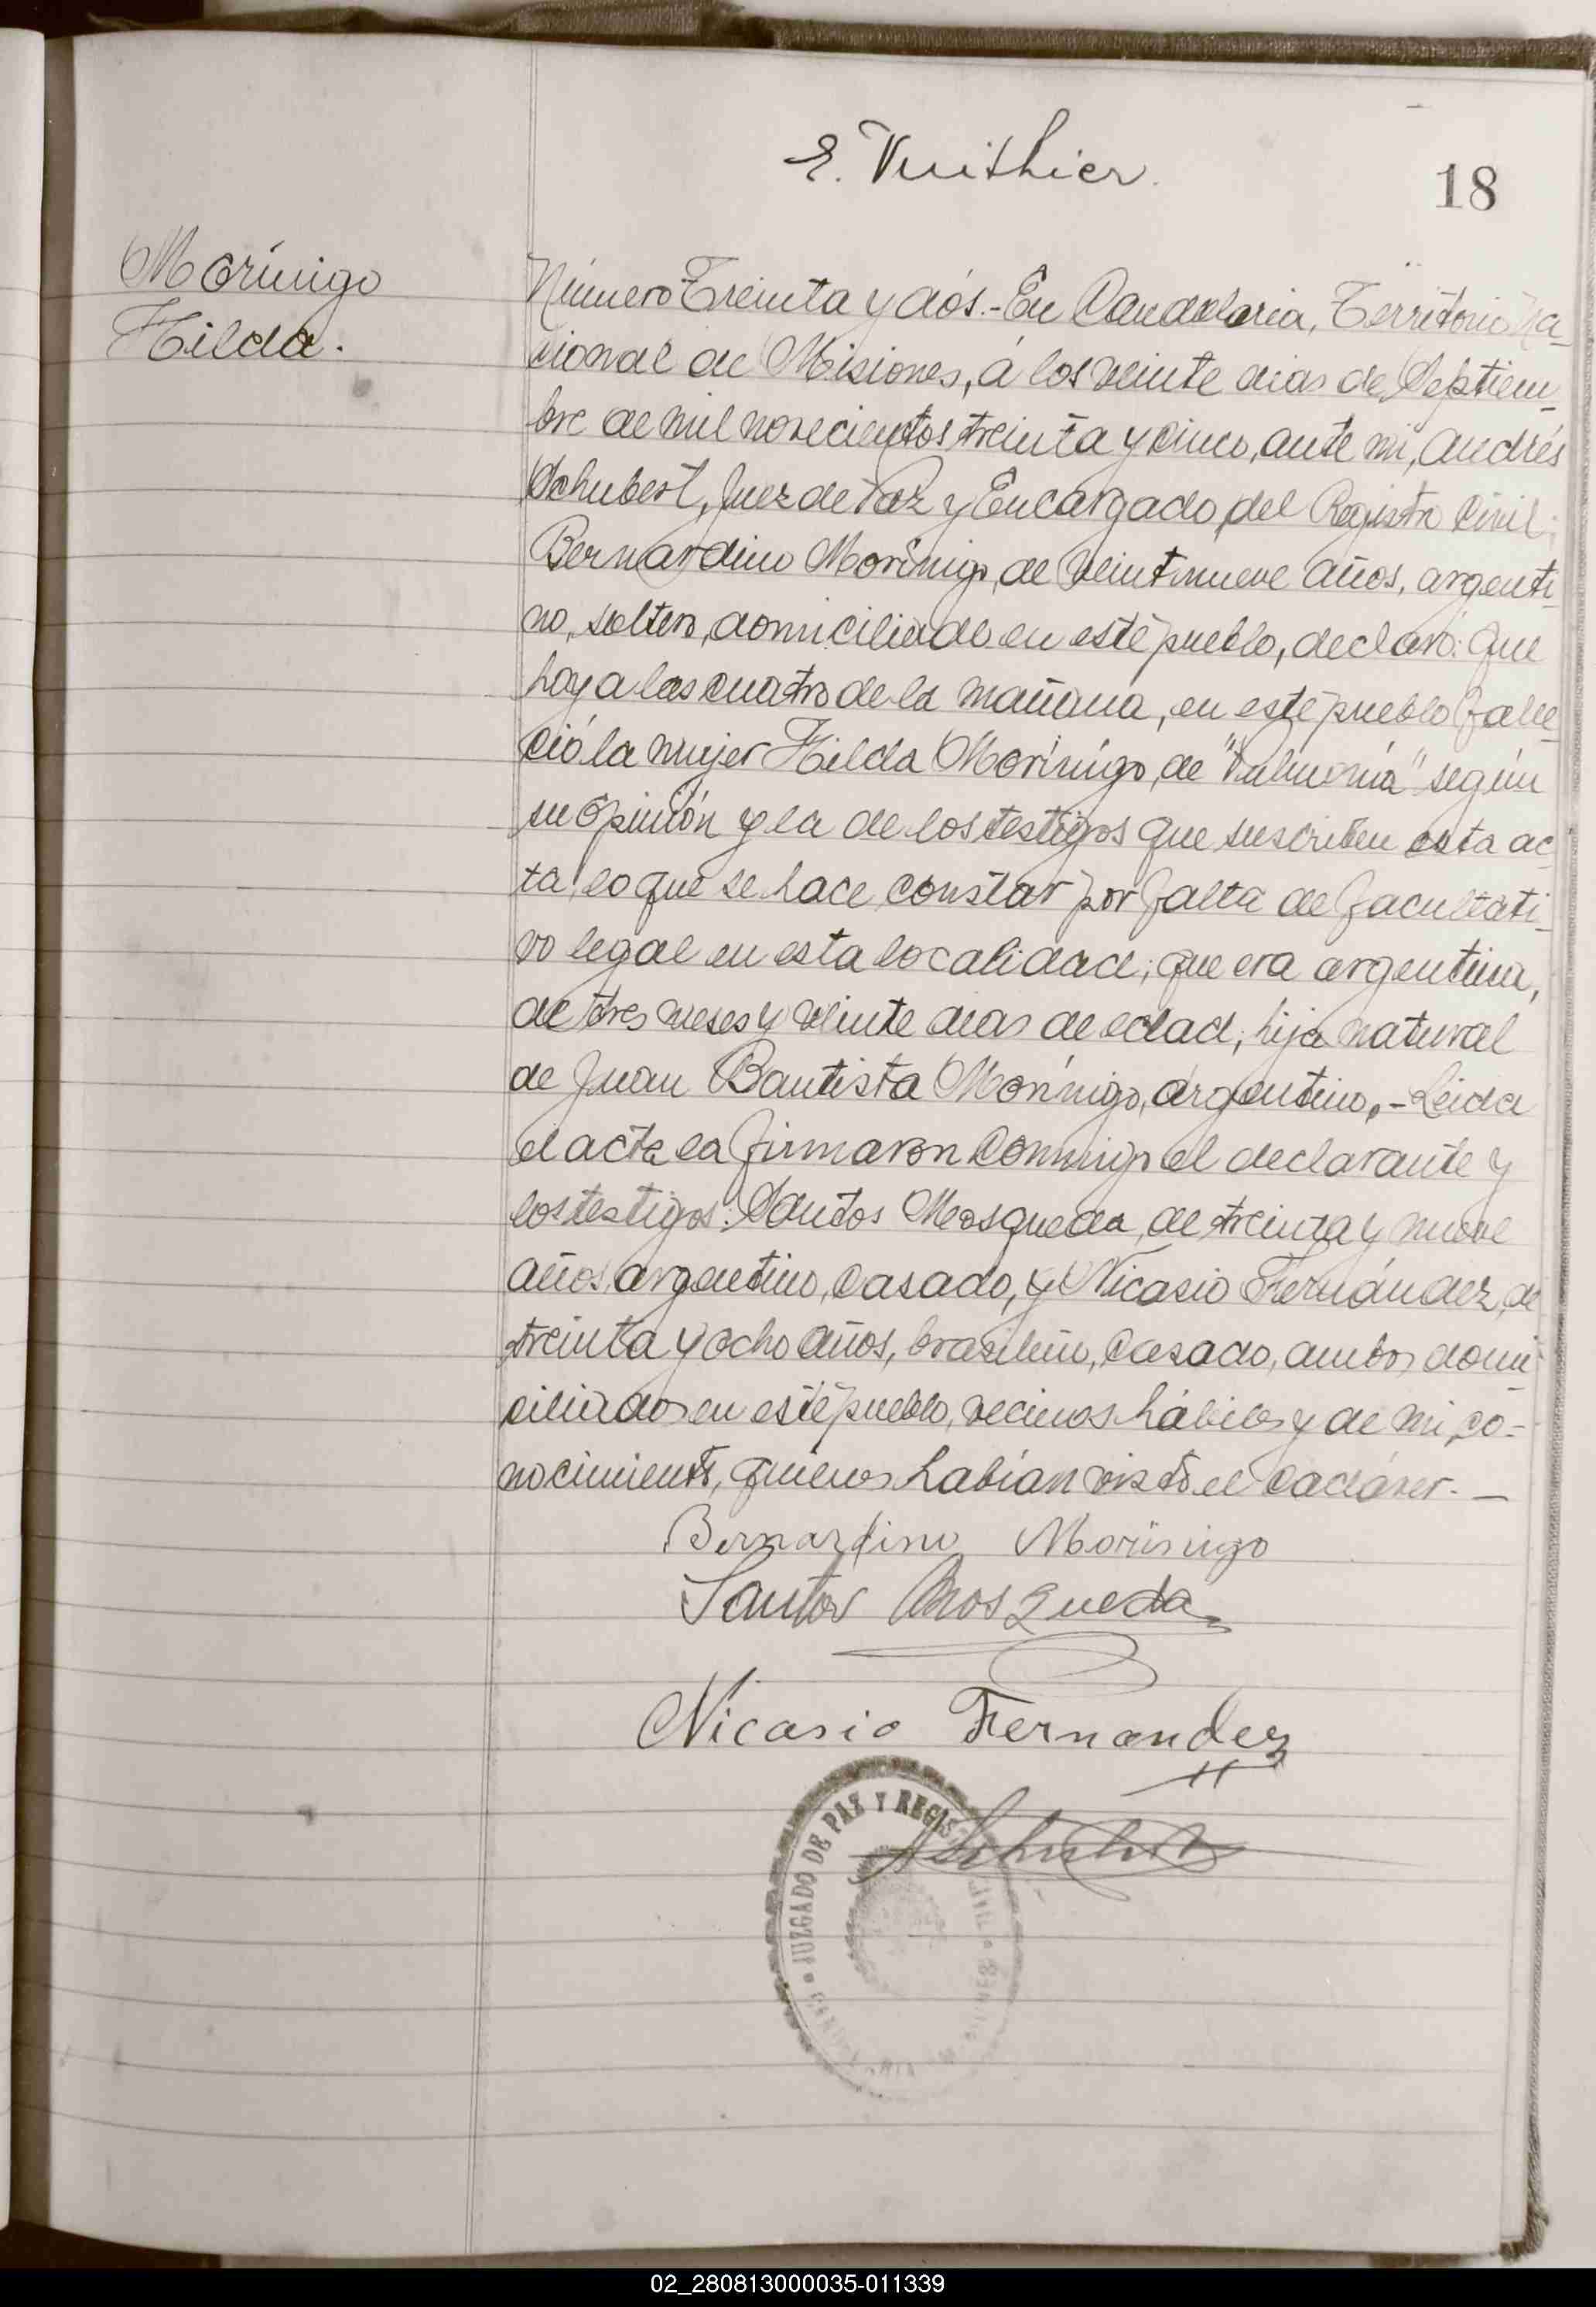 E. Vuithier.
18
Morínigo
Hilda.
Número Treinta y dós.- En Candelaria, Territorio Na-
cional de Misiones, á los veinte dias de Septiem-
bre de mil novecientos treinta y cinco, ante mi, Andrés
Schubert, Juez de Paz y Encargado del Registro Civil;
Bernardino Morínigo, de veintinueve años, argenti-
no, soltero, domiciliado en esté pueblo, declaró: Que
hoy a las cuatro de la mañana, en esté pueblo falle-
ció la mujer Hilda Morínigo, de "Pulmonía" según
su opinión y la de los testigos que suscriben esta ac-
ta, lo que se hace constar por falta de facultati-
vo legal en esta localidad; que era argentina,
de tres meses y veinte dias de edad; hija natural
de Juan Bautista Morínigo, argentino.- Leida
el acta la firmaron conmigo el declarante y
los testigos: Santos Mosqueda, de treinta y nueve
años, argentino, casado, y Nicasio Fernández, de
treinta y ocho años, brasileño, casado, ambos domi-
ciliados en esté pueblo, vecinos hábiles y de mi co-
nocimiento, quienes habían visto el cadáver.-
Bernardino Morínigo
Santos Mosqueda
Nicasio Fernandez
ASchubert
JUZGADO DE PAZ Y REGIS
02_280813000035-011339